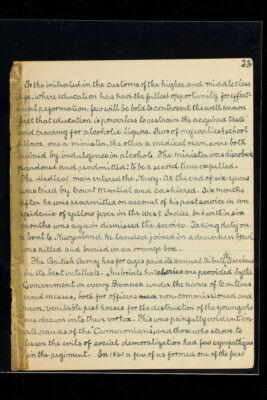 23
To the initiated in the customs of the higher and middle class
life, where education has had the fullest opportunity for effect-
ual reformation, few will be bold to controvert the well known
fact that education is powerless to restrain the acquired taste
and craving for alcoholic liquors. Two of my earliest school
fellows, one a minister, the other a medical man, were both
ruined by indulgence in alcohols. The minister was disrobed
pardoned and readmitted; to be a second time expelled.
The Medical man entered the Navy. At the end of six years
was tried by Court Martial and cashiered. Six months
after he was readmitted on account of his past service in an
epidemic of yellow fever in the West Indies, but within six
months was again dismissed the service. Taking duty on
a boat to Maryland he landed, joined in a drunken brawl
was killed and buried in an orange box.
The British Army has for ages paid its annual tribute to Bacchus
in its best intellects. Inebriate hatcheries are provided by the
Government in every Barrack under the name of Canteens
and messes, both for officers and non-commissioned and
men, veritable pest houses for the destruction of the young who
are drawn into their vortex. This was painfully evident in
all ranks of the 'Cameronians', and those who strove to
lessen the evils of social demoralization had few sympathizers
in the regiment. In 1861 a few of us formed one of the first